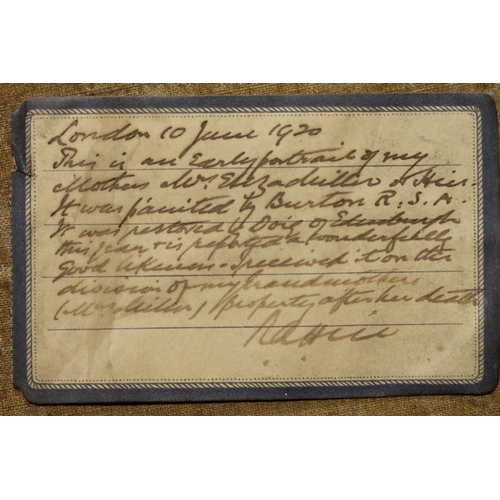 London 10 June 1920
This is an Early portrait of my
Mother Mrs Eliza Miller or Hill.
It was painted by Burton R.S.A.
It was restored by Doig of Edinburgh
this year & is reputed a wonderfully
Good likeness. I received it on the
division of my Grandmothers
(Mrs Miller) property after her death